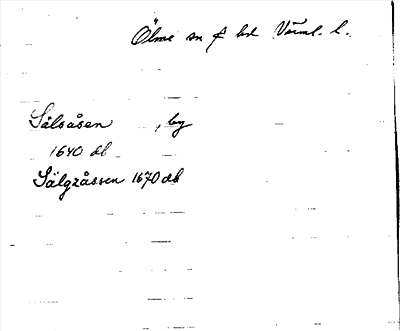 Ölme sn f hd Värml. l.
Sälsåsen , by
1640 db
Sälgzåssen 1670 db